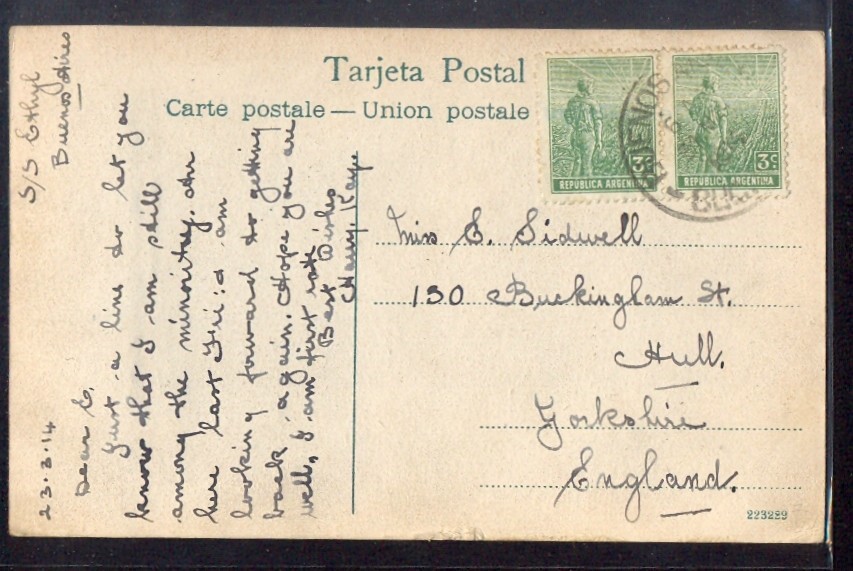 Tarjeta Postal
Carte postale — Union postale
REPUBLICA ARGENTINA
3c
REPUBLICA ARGENTINA
3c
BUENOS
S/S Ethyl
Buenos Aires
23.3.14
Dear E.
Just a line to let you
know that I am still
among the minority. Arr
here last Fri: & am
looking forward to getting
back again. Hope you are
well, I am first rate
Best Wishes
Harry. Kay.
Miss E. Sidwell
130 Buckingham St.
Hull.
Yorkshire
England.
223289